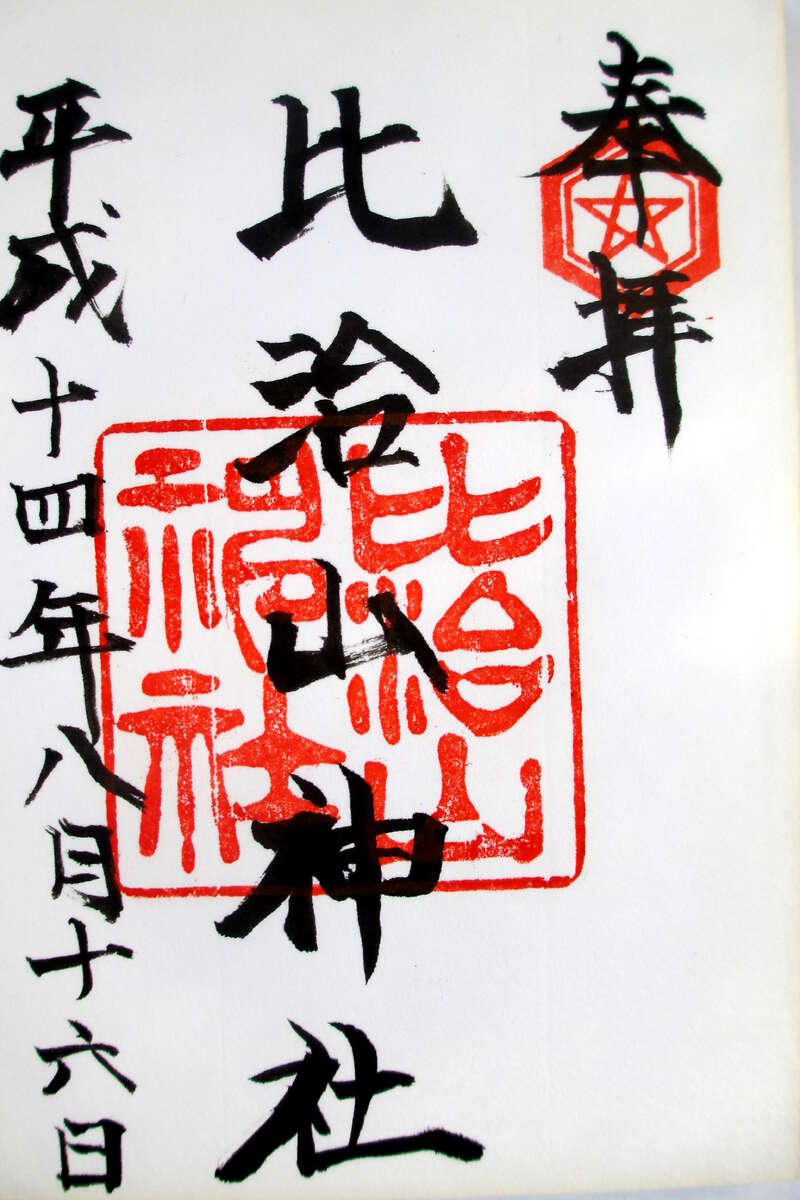 奉拝
比治山神社
比治山
神社
平成十四年八月十六日